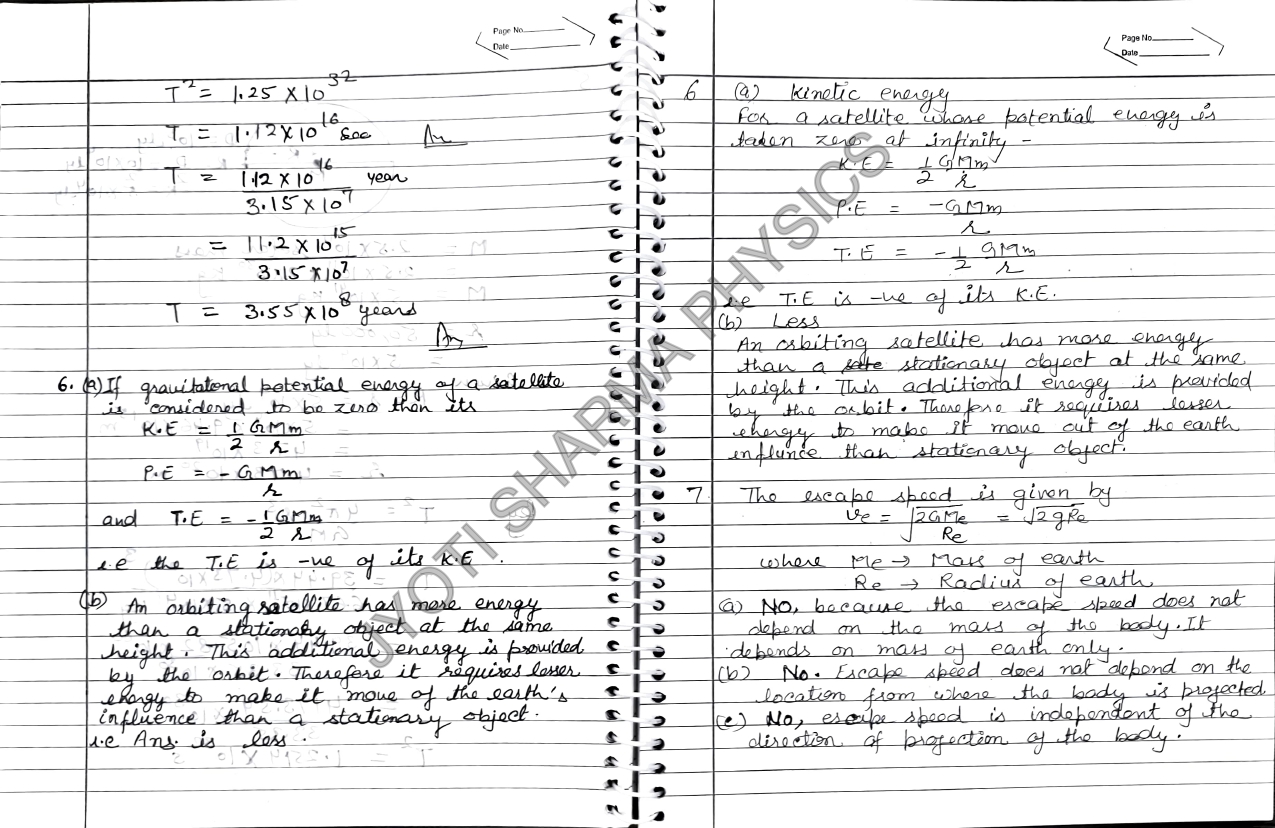 Page No.
Date
T² = 1.25 × 10³²
T = 1.12 × 10¹⁶ Sec Ans
T = 1.12 × 10¹⁶ / 3.15 × 10⁷ year
= 11.2 × 10¹⁵ / 3.15 × 10⁷
T = 3.55 × 10⁸ years
Ans
6. (a) If gravitational potential energy of a satellite
is considered to be zero then its
K.E = 1/2 GMm/r
P.E = - GMm/r
and T.E = - 1/2 GMm/r
i.e the T.E is -ve of its K.E.
(b) An orbiting satellite has more energy
than a stationary object at the same
height. This additional energy is provided
by the orbit. Therefore it requires lesser
energy to make it move of the earth's
influence than a stationary object.
i.e Ans. is less.
Page No.
Date
6 (a) Kinetic energy
For a satellite whose potential energy is
taken zero at infinity -
K.E = 1/2 GMm/r
P.E = -GMm/r
T.E = - 1/2 GMm/r
i.e T.E is -ve of its K.E.
(b) Less
An orbiting satellite has more energy
than a stationary object at the same
height. This additional energy is provided
by the orbit. Therefore it requires lesser
energy to make it move out of the earth
inflунce than stationary object.
7 The escape speed is given by
ve = √2GMe/Re = √2gRe
where Me → Mass of earth
Re → Radius of earth
(a) No, because the escape speed does not
depend on the mass of the body. It
depends on mass of earth only.
(b) No. Escape speed does not depend on the
location from where the body is projected
(c) No, escape speed is independent of the
direction of projection of the body.
JYOTI SHARMA PHYSICS